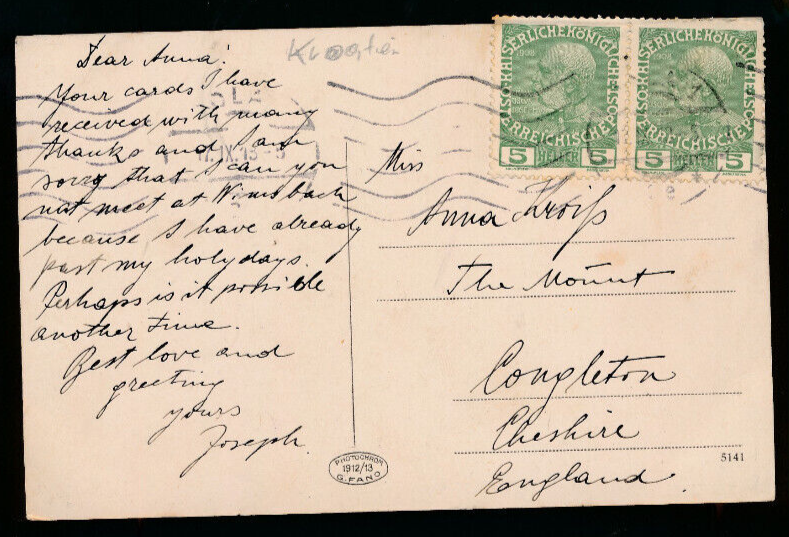 Kroatien
Dear Anna!
Your cards I have
received with many
thanks and I am
sorry that I can you
not meet at Wimsbach
because I have already
past my holydays.
Perhaps is it possible
another time.
Best love and
greeting
yours
Joseph.
KAISERLICHEKÖNIGLICHE
ÖSTERREICHISCHEPOST
5 HELLER 5
KAISERLICHEKÖNIGLICHE
ÖSTERREICHISCHEPOST
5 HELLER 5
Miss
Anna Kroiß
The Mount
Congleton
Cheshire
England.
PHOTOCHROM
1912/13
G. FANO
5141